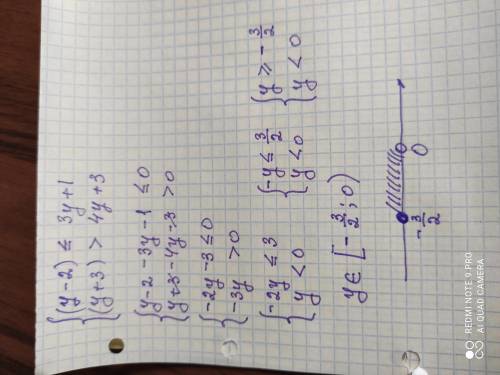 {(y-2) ≤ 3y+1
{(y+3) > 4y+3
{y-2-3y-1 ≤0
{y+3-4y-3 >0
{-2y-3≤0
{-3y >0
{-2y ≤ 3 {-y≤ 3/2 {y ≥ -3/2
{y < 0 {y < 0 {y < 0
y∈ [-3/2; 0)
-3/2 0
REDMI NOTE 9 PRO
AI QUAD CAMERA